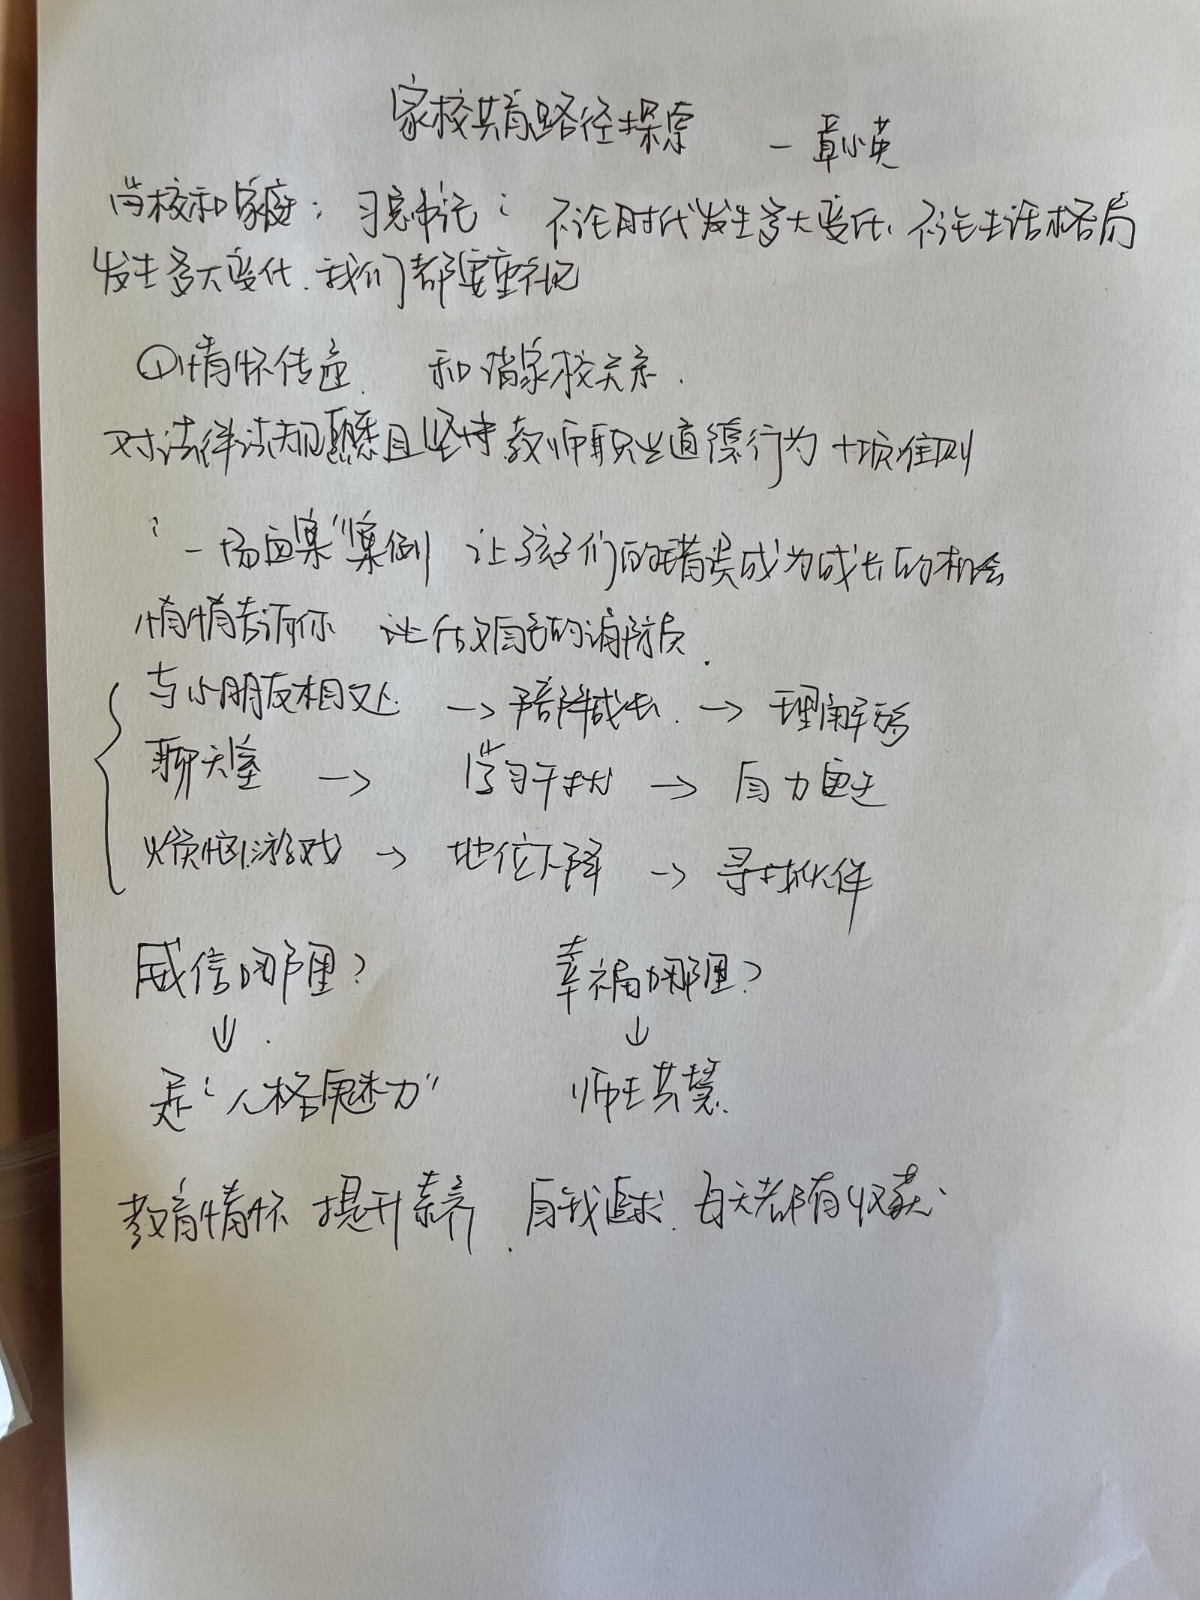 家校共育路径探索 — 章小英
学校和家庭：习总书记：不论时代发生多大变化，不论生活格局
发生多大变化，我们都要重视
①情怀传递. 和谐家校关系.
对法律法规熟悉且坚持教师职业道德行为十项准则
“一场血案”案例 让孩子们的错误成为成长的机会
悄悄告诉你 让 做 的消防员.
与小朋友相处 → 陪伴成长. → 理解
聊天室 → 学习干扰 → 自力更生
烦恼游戏 → 地位下降 → 寻找伙伴
威信哪里? 幸福哪里?
↓ ↓
是“人格魅力” 师生共慧.
教育情怀 提升素养. 自我追求. 每天都有收获.